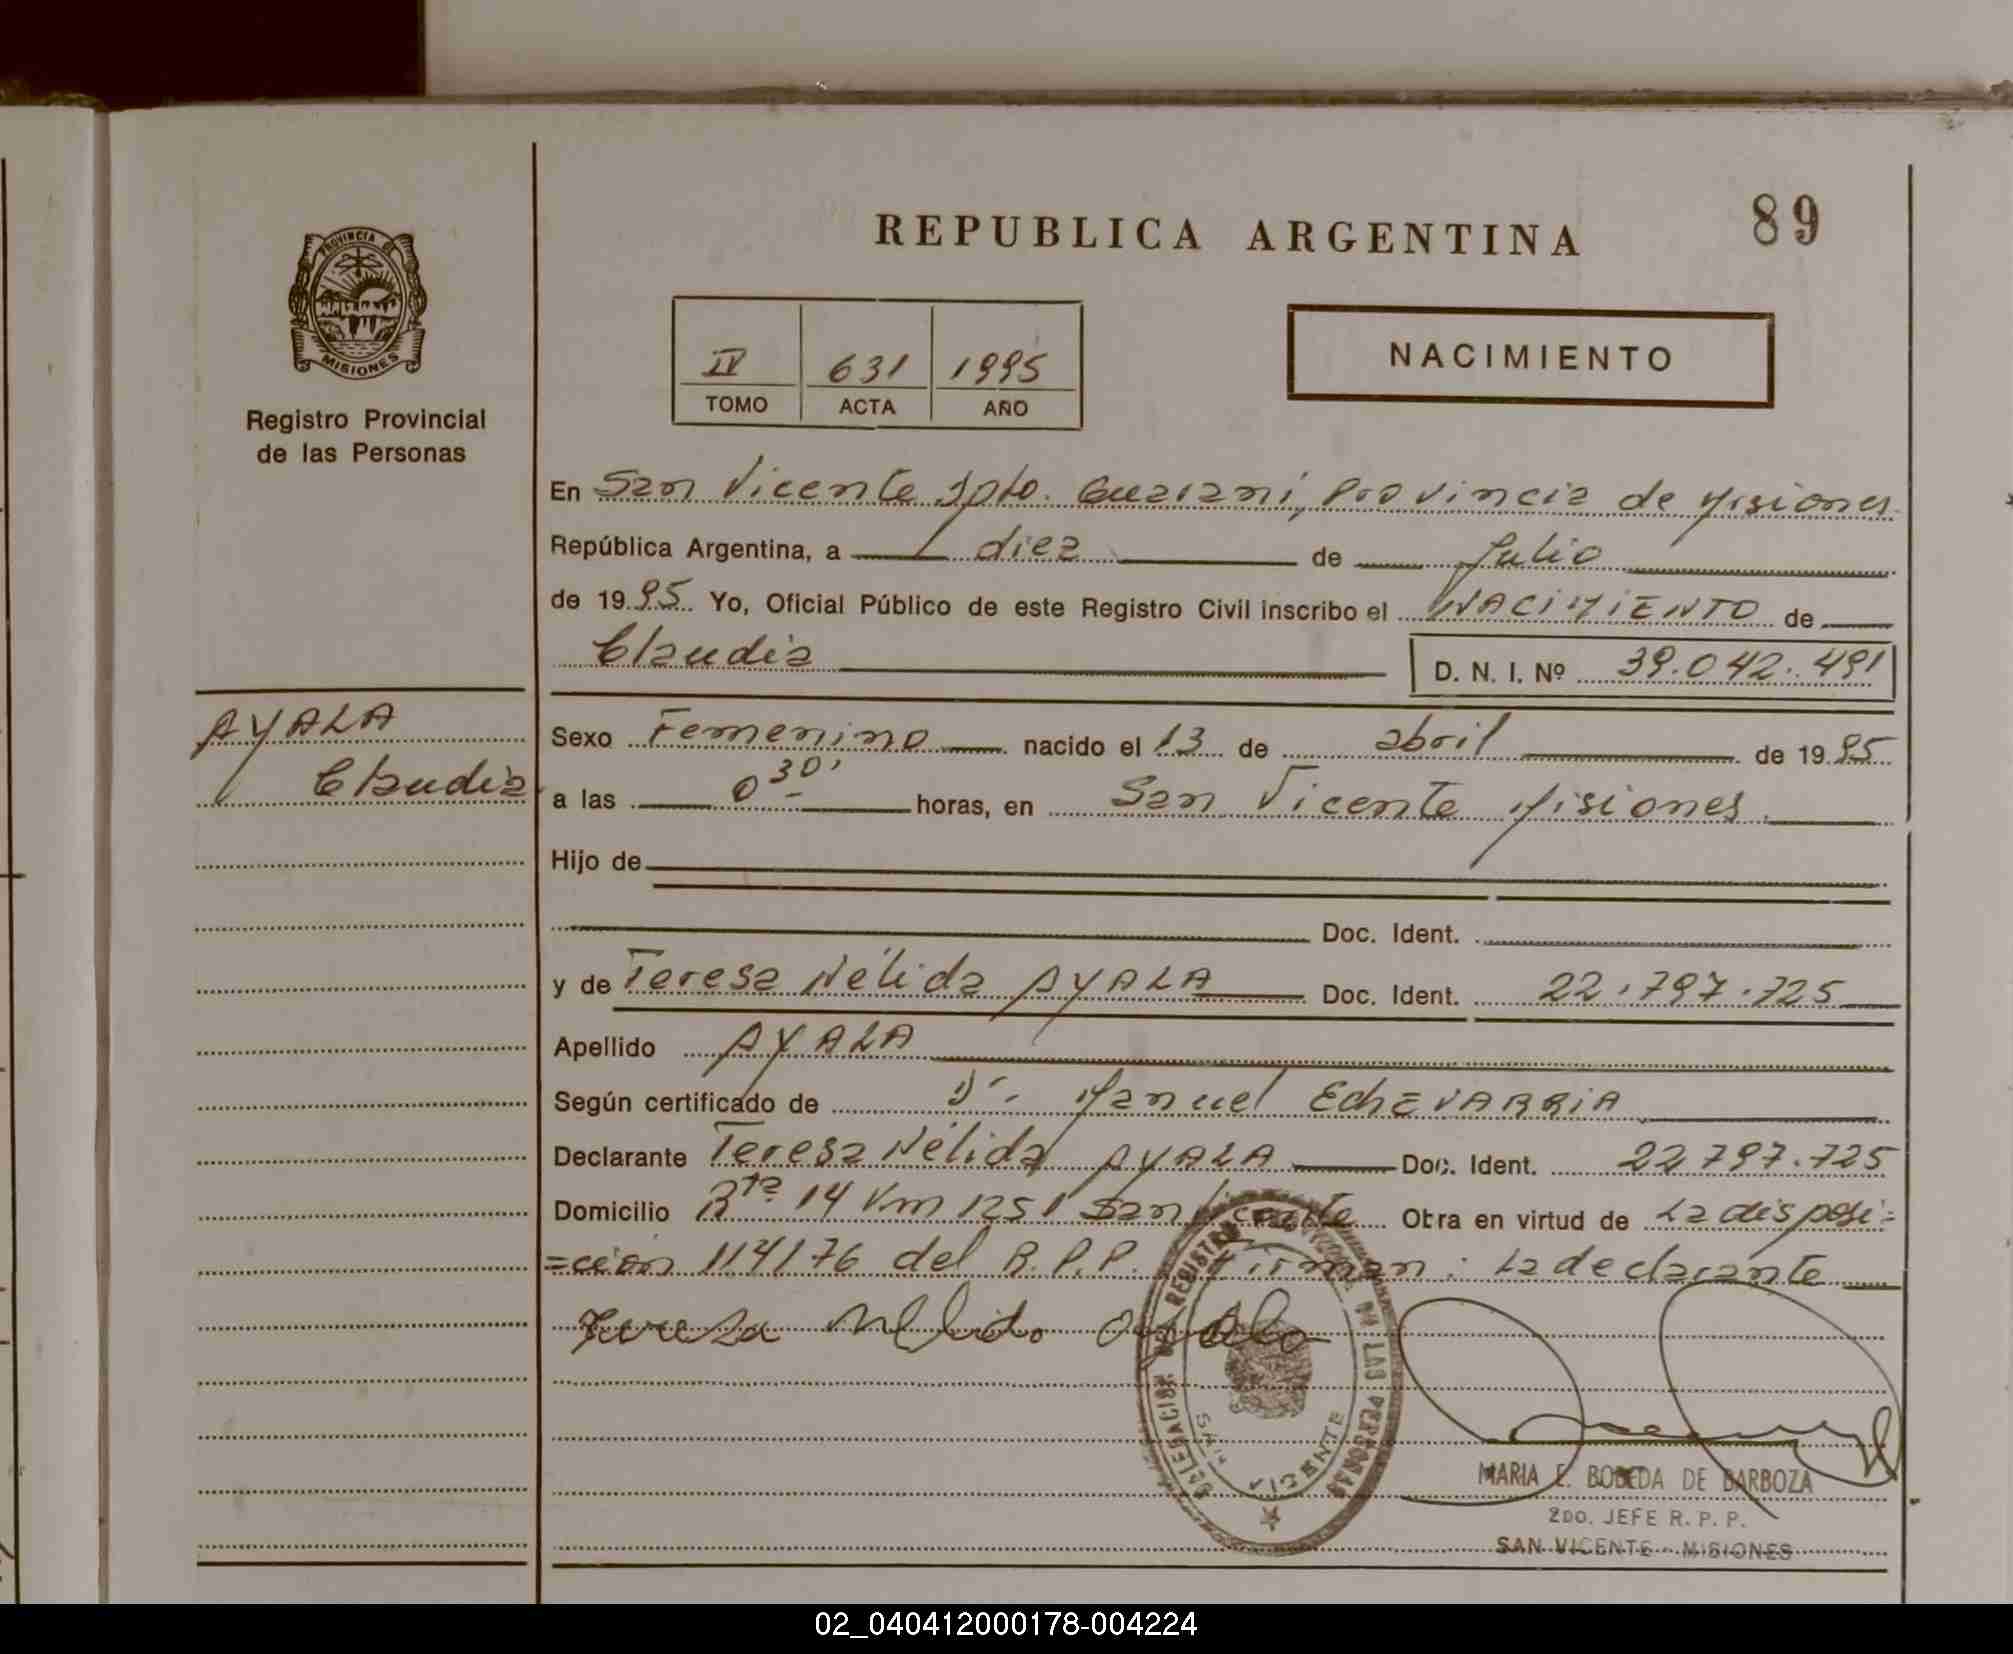 REPUBLICA ARGENTINA
89
PROVINCIA DE
MISIONES
Registro Provincial
de las Personas
IV 631 1995
TOMO ACTA AÑO
NACIMIENTO
En San Vicente Dpto. Guarani, Provincia de Misiones
República Argentina, a diez de Julio
de 1995 Yo, Oficial Público de este Registro Civil inscribo el NACIMIENTO de
Claudia D. N. I. Nº 39.042.491
AYALA
Claudia
Sexo Femenino nacido el 13 de abril de 1995
a las 0 30' horas, en San Vicente Misiones
Hijo de
Doc. Ident.
y de Teresa Nélida AYALA Doc. Ident. 22.797.725
Apellido AYALA
Según certificado de Dr. Manuel EchEVARRiA
Declarante Teresa Nélida AYALA Doc. Ident. 22797.725
Domicilio Rta 14 Km 1251 San Vicente Obra en virtud de La disposi=
=ción 114/76 del R.P.P. Firman: La declarante
Teresa Nelida Ayala
DELEGACION DEL REGISTRO DE LAS PERSONAS
SAN VICENTE
MARIA E. BOBEDA DE BARBOZA
2DO. JEFE R. P. P.
SAN VICENTE - MISIONES
02_040412000178-004224